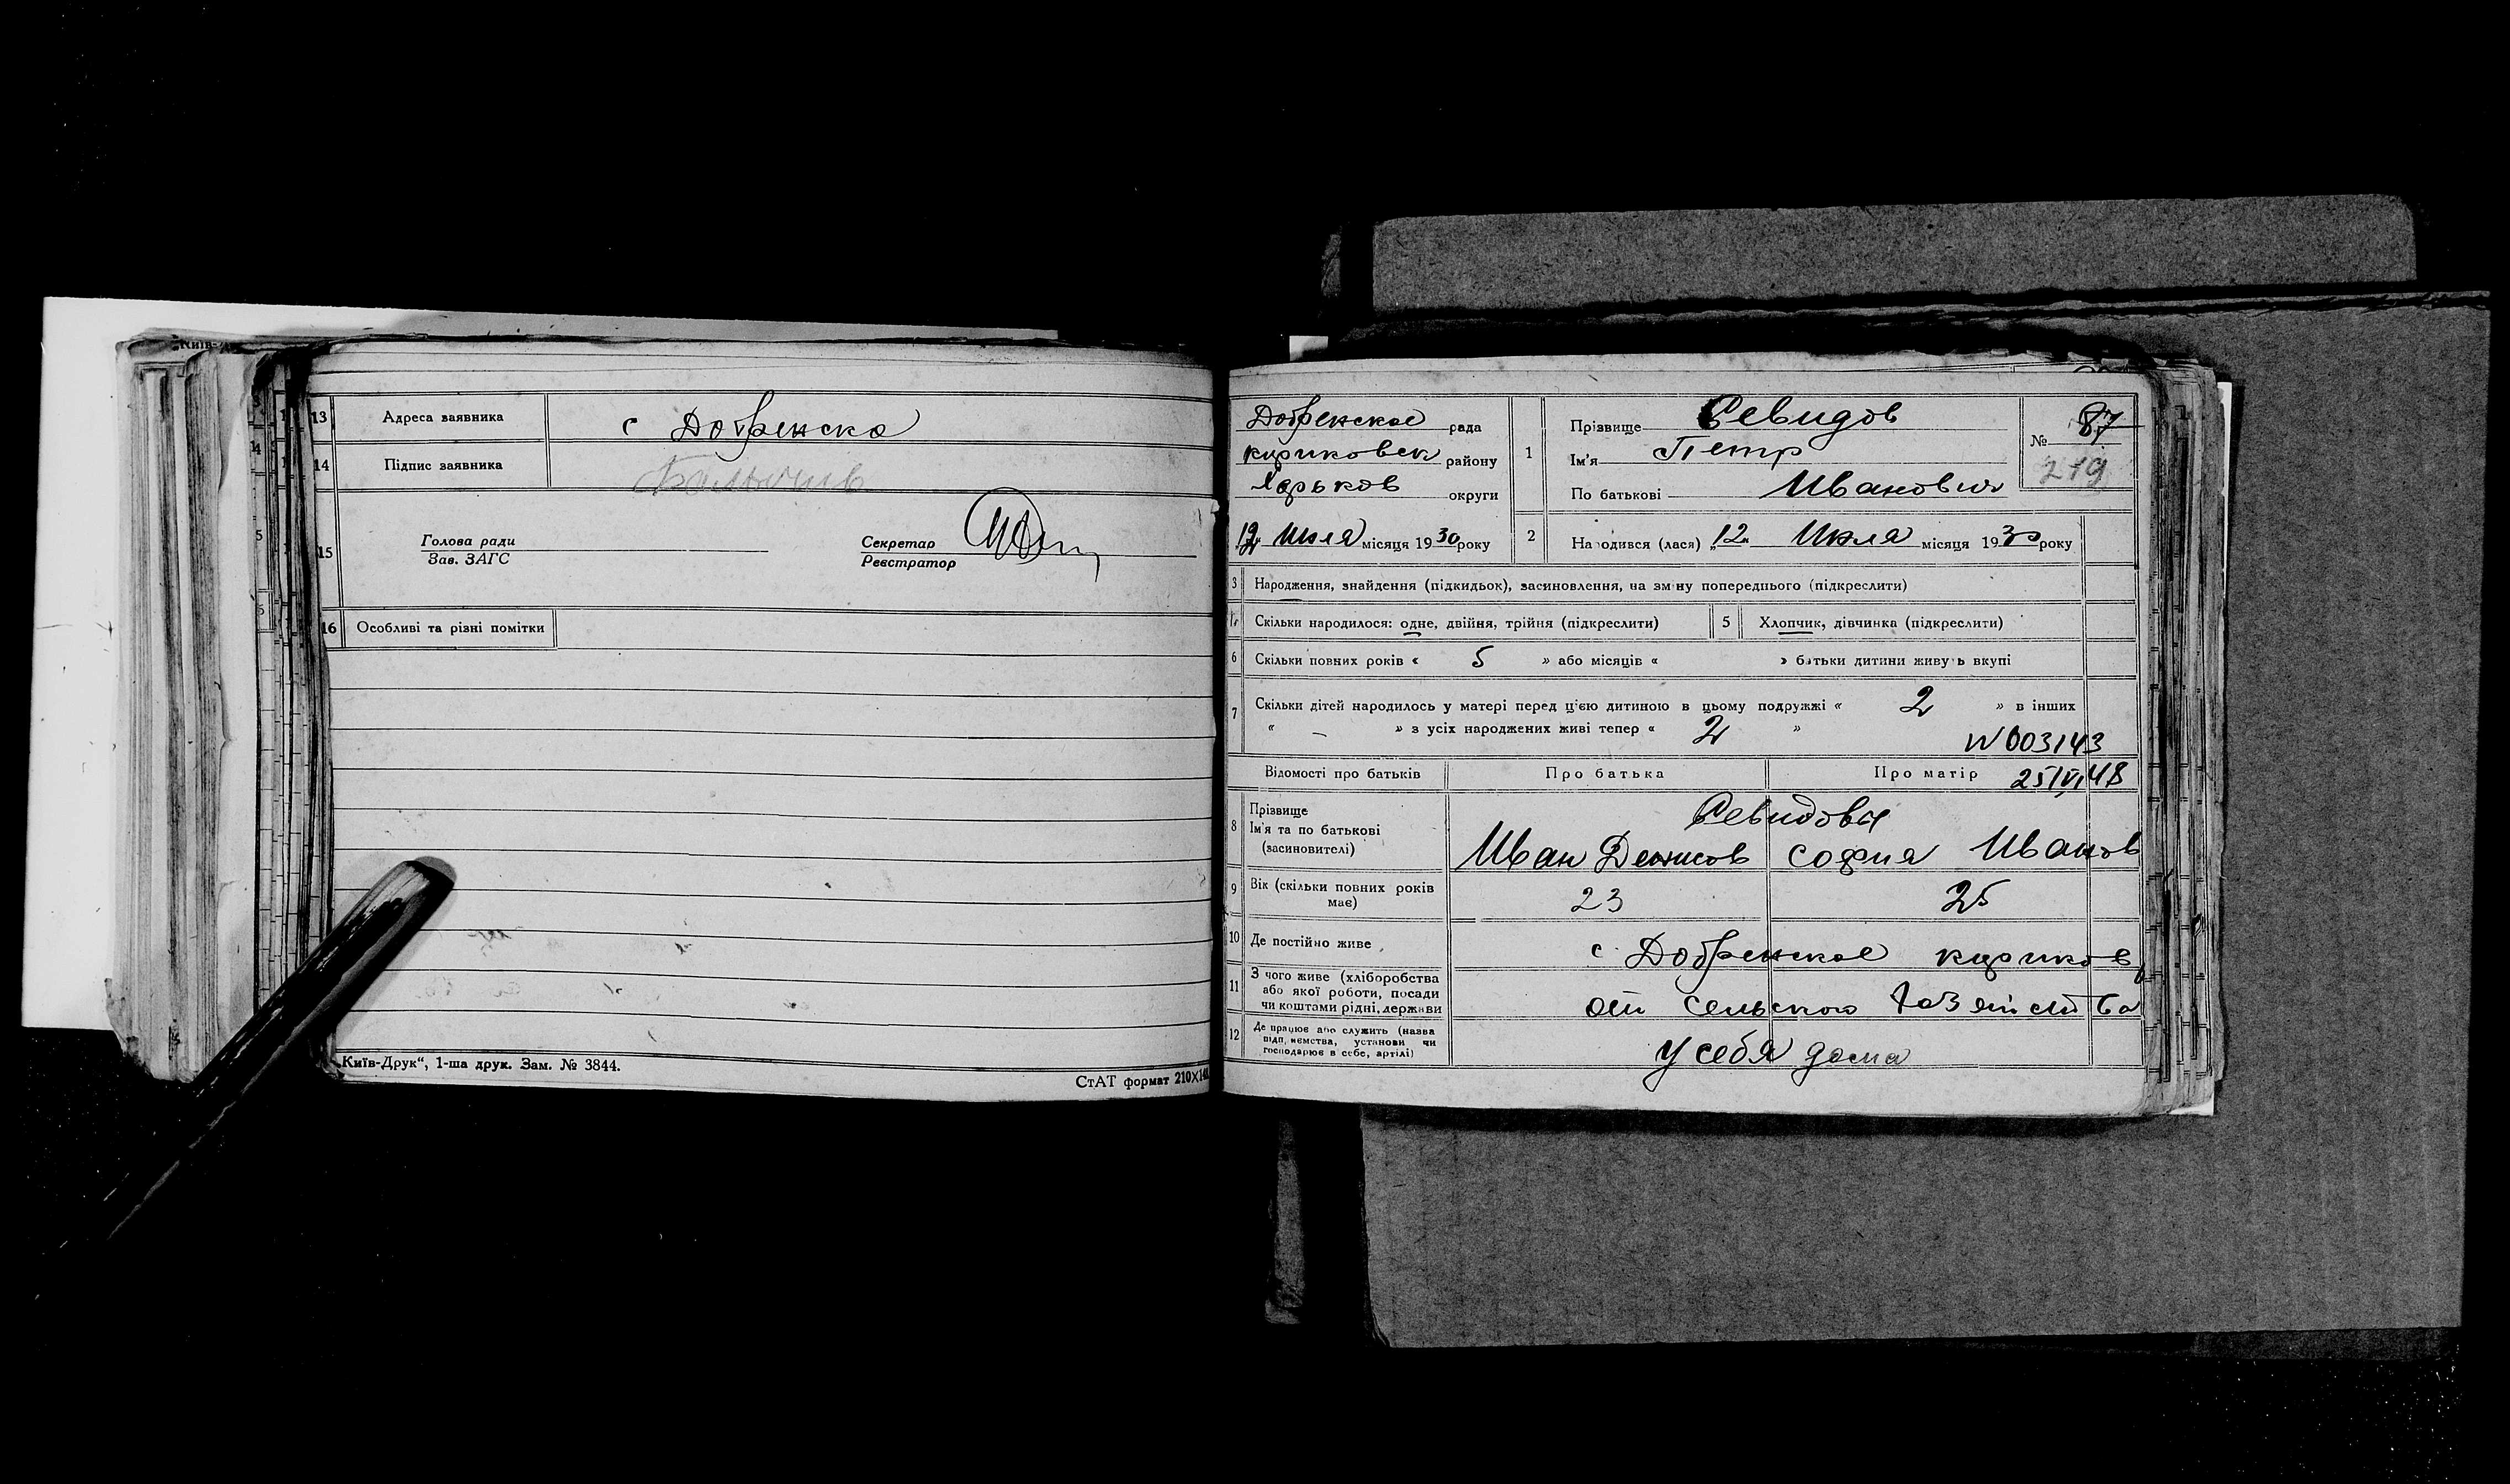 Київ-
13 Адреса заявника с Добренска
14 Підпис заявника
15 Голова ради
Зав. ЗАГС
Секретар
Реєстратор
16 Особливі та різні помітки
Київ-Друк“, 1-ша друк. Зам. № 3844.
СтАТ формат 210×14
Добренское рада
района району
Харьков округи
12 Июля місяця 1930 року
1 Прізвище Севидов
Ім'я Петр
По батькові Иванович
№ 87
219
2 Народився (лася) „12„ Июля місяця 1930 року
3 Народження, знайдення (підкидьок), засиновлення, на зміну попереднього (підкреслити)
4 Скільки народилося: одне, двійня, трійня (підкреслити)
5 Хлопчик, дівчинка (підкреслити)
6 Скільки повних років « 5 » або місяців « » батьки дитини живуть вкупі
7 Скільки дітей народилось у матері перед цією дитиною в цьому подружжі « 2 » в інших
« – » з усіх народжених живі тепер « 2 »
N 003143
Відомості про батьків Про батька Про матір 25/VI 48
8 Прізвище
Ім'я та по батькові
(засиновителі)
Севидовы
Иван Денисов София Иванов
9 Вік (скільки повних років має) 23 25
10 Де постійно живе с. Добренское
11 З чого живе (хліборобства
або якої роботи, посади
чи коштами рідні, держави
от сельского хозяйства
12 Де працює або служить (назва
підприємства, установи чи
господарює в себе, артілі)
у себя дома